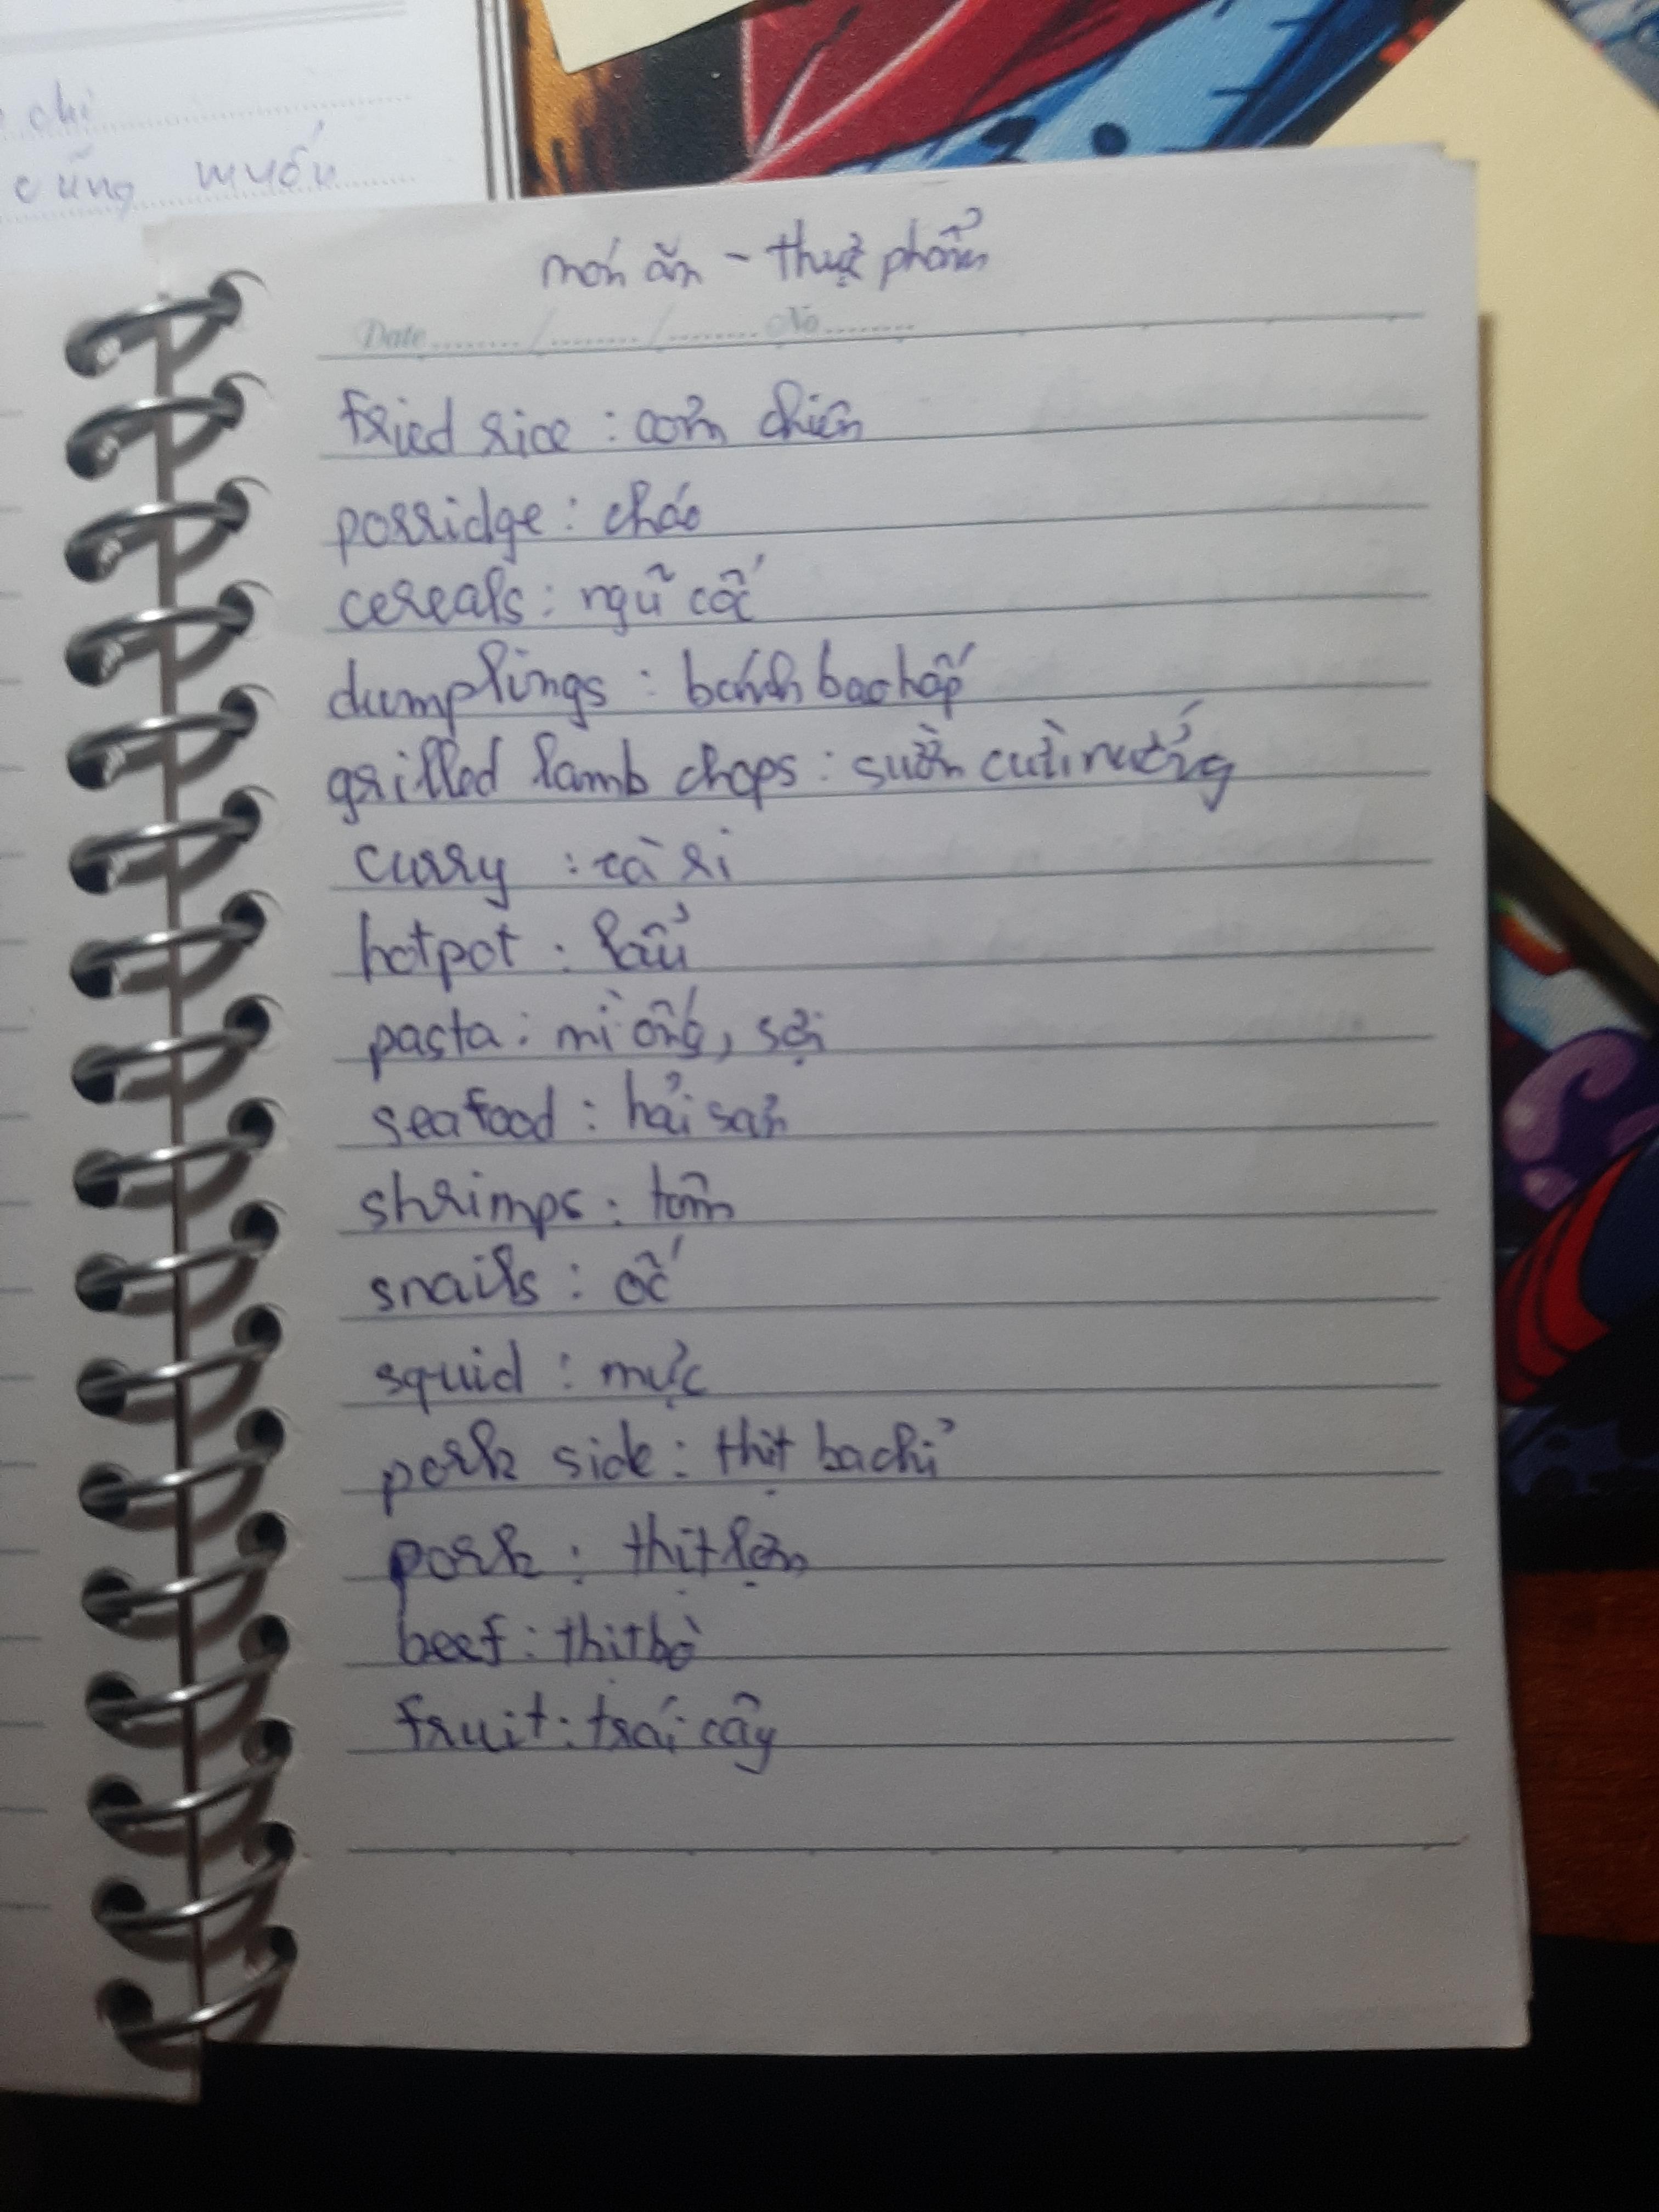 chỉ
cũng muốn
món ăn - thực phẩm
Date ......../......../........ No ........
fried rice : cơm chiên
porridge : cháo
cereals : ngũ cốc
dumplings : bánh bao hấp
grilled lamb chops : sườn cừu nướng
curry : cà ri
hotpot : lẩu
pasta : mì ống, sợi
seafood : hải sản
shrimps : tôm
snails : ốc
squid : mực
pork side : thịt ba chỉ
pork : thịt lợn
beef : thịt bò
fruit : trái cây